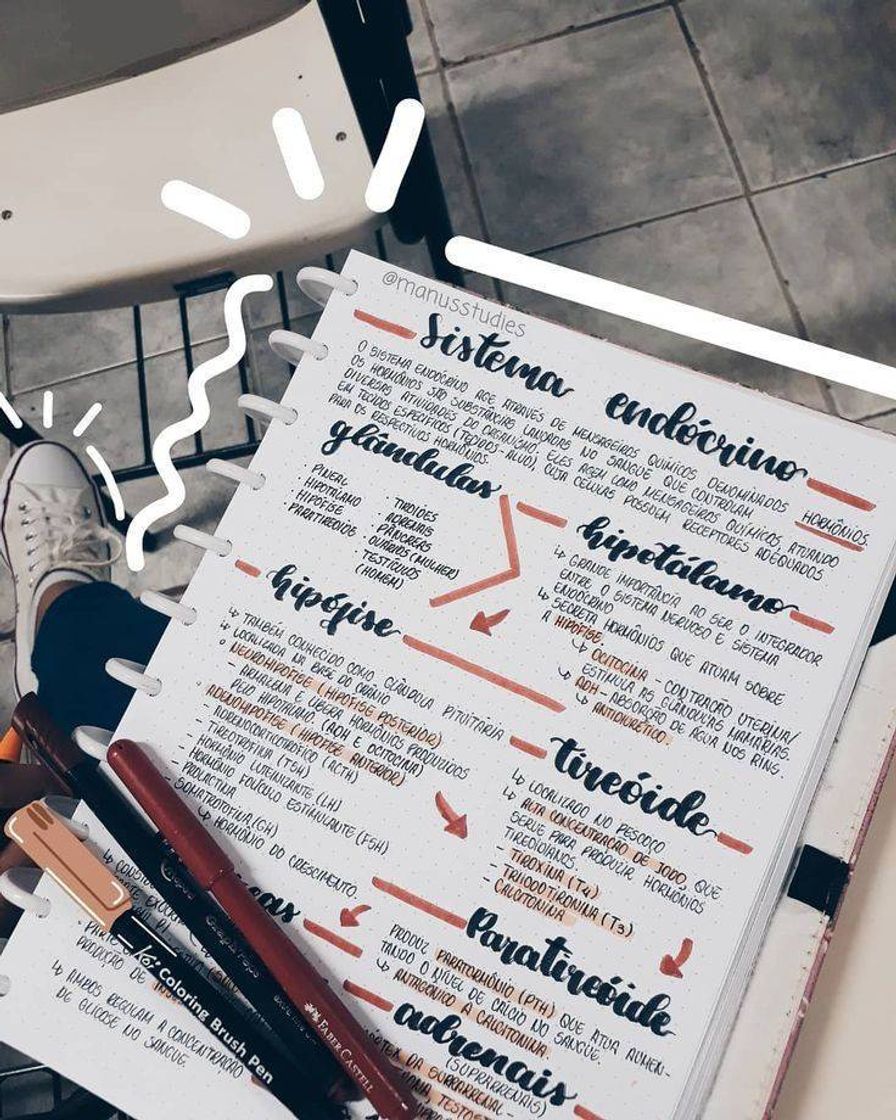 @manusstudies
sistema endócrino
O SISTEMA ENDÓCRINO AGE ATRAVÉS DE MENSAGEIROS QUÍMICOS DENOMINADOS HORMÔNIOS
OS HORMÔNIOS SÃO SUBSTÂNCIAS LANÇADAS NO SANGUE QUE CONTROLAM
DIVERSAS ATIVIDADES DO ORGANISMO, ELES AGEM COMO MENSAGEIROS QUÍMICOS, ATUANDO
EM TECIDOS ESPECÍFICOS (TECIDOS-ALVO), CUJA CÉLULAS POSSUEM RECEPTORES ADEQUADOS
PARA OS RESPECTIVOS HORMÔNIOS.
glândulas
· PINEAL
· HIPOTALAMO
· HIPÓFISE
· PARATIREOIDE
· TIROIDES
· ADRENAIS
· PÂNCREAS
· OVÁRIOS (MULHER)
TESTÍCULOS
(HOMEM)
hipotálamo
↳ GRANDE IMPORTÂNCIA AO SER O INTEGRADOR
ENTRE O SISTEMA NERVOSO E SISTEMA
ENDÓCRINO
↳ SECRETA HORMÔNIOS QUE ATUAM SOBRE
A HIPÓFISE
↳ OCITOCINA - CONTRAÇÃO UTERINA/
ESTIMULA AS GLÂNDULAS MAMÁRIAS.
↳ ADH - ABSORÇÃO DE ÁGUA NOS RINS.
- ANTIDIURÉTICO.
hipófise
↳ TAMBÉM CONHECIDO COMO GLÂNDULA PITUITÁRIA
↳ LOCALIZADA NA BASE DO CRÂNIO
° NEUROHIPÓFISE (HIPÓFISE POSTERIOR)
- ARMAZENA E LIBERA HORMÔNIOS PRODUZIDOS
PELO HIPOTÁLAMO. (ADH E OCITOCINA)
° ADENOHIPÓFISE (HIPÓFISE ANTERIOR)
- ADRENOCORTICOTRÓFICO (ACTH)
- TIREOTROFINA (TSH)
- HORMÔNIO LUTEINIZANTE (LH)
- HORMÔNIO FOLÍCULO ESTIMULANTE (FSH)
- PROLACTINA
- SOMATROTOFINA (GH)
↳ HORMÔNIO DO CRESCIMENTO.
tireóide
↳ LOCALIZADO NO PESCOÇO
↳ ALTA CONCENTRAÇÃO DE IODO, QUE
SERVE PARA PRODUZIR HORMÔNIOS
TIREOIDIANOS.
- TIROXINA (T4)
- TRIIODOTIRONINA (T3)
- CALCITONINA
Paratireóide
PRODUZ PARATORMÔNIO (PTH) QUE ATUA AUMEN-
TANDO O NÍVEL DE CÁLCIO NO SANGUE.
↳ ANTAGÔNICO A CALCITONINA.
adrenais
(SUPRARRENAIS)
DA SUPRARRENAL -
PARTE
PRODUÇÃO DE
↳ AMBOS REGULAM A CONCENTRAÇÃO
DE GLICOSE NO SANGUE.
Koi Coloring Brush Pen
FABER CASTELL